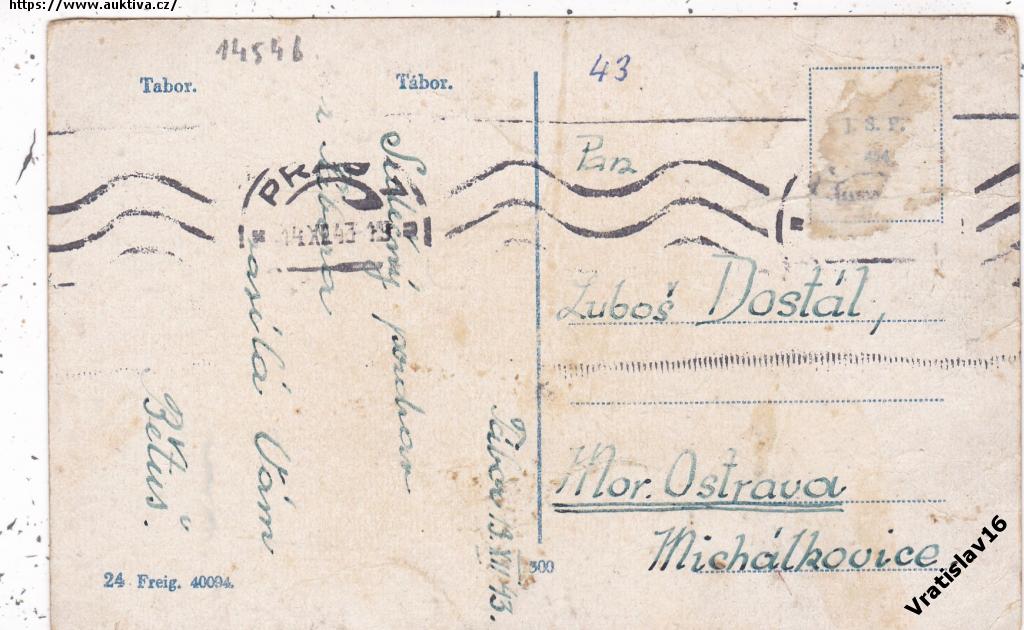 https://www.auktiva.cz/
14546
Tabor.
Tábor.
43
J. S. P.
Pan
Luboš Dostál,
Mor. Ostrava
Michálkovice
Tábor 13.XII.43.
Srdečný pozdrav
z Tábora
zasílá Vám
Bětuš.
PRA
14.XII.43-18
24 Freig. 40094.
300
Vratislav16